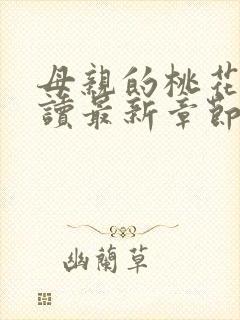 母親的桃花
讀最新章節
幽蘭草